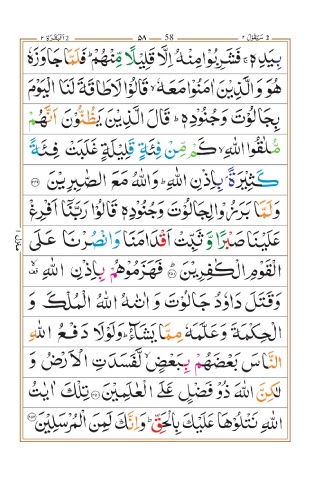 بِيَدِهٖ ۚ فَشَرِبُوْا مِنْهُ اِلَّا قَلِيْلًا مِّنْهُمْ ؕ فَلَمَّا جَاوَزَهٗ
هُوَ وَالَّذِيْنَ اٰمَنُوْا مَعَهٗ ۙ قَالُوْا لَا طَاقَةَ لَنَا الْيَوْمَ
بِجَالُوْتَ وَجُنُوْدِهٖ ؕ قَالَ الَّذِيْنَ يَظُنُّوْنَ اَنَّهُمْ
مُّلٰقُوا اللّٰهِ ۙ كَمْ مِّنْ فِئَةٍ قَلِيْلَةٍ غَلَبَتْ فِئَةً
كَثِيْرَةً ۢ بِاِذْنِ اللّٰهِ ؕ وَاللّٰهُ مَعَ الصّٰبِرِيْنَ ﴿۲۴۹﴾
وَلَمَّا بَرَزُوْا لِجَالُوْتَ وَجُنُوْدِهٖ قَالُوْا رَبَّنَاۤ اَفْرِغْ
عَلَيْنَا صَبْرًا وَّ ثَبِّتْ اَقْدَامَنَا وَانْصُرْنَا عَلَى
الْقَوْمِ الْكٰفِرِيْنَ ﴿۲۵۰﴾ فَهَزَمُوْهُمْ بِاِذْنِ اللّٰهِ
وَقَتَلَ دَاوٗدُ جَالُوْتَ وَ اٰتٰٮهُ اللّٰهُ الْمُلْكَ وَ
الْحِكْمَةَ وَعَلَّمَهٗ مِمَّا يَشَآءُ ؕ وَلَوْلَا دَفْعُ اللّٰهِ
النَّاسَ بَعْضَهُمْ بِبَعْضٍ ۙ لَّفَسَدَتِ الْاَرْضُ وَ
لٰكِنَّ اللّٰهَ ذُوْ فَضْلٍ عَلَى الْعٰلَمِيْنَ ﴿۲۵۱﴾ تِلْكَ اٰيٰتُ
اللّٰهِ نَتْلُوْهَا عَلَيْكَ بِالْحَقِّ ؕ وَاِنَّكَ لَمِنَ الْمُرْسَلِيْنَ ﴿۲۵۲﴾